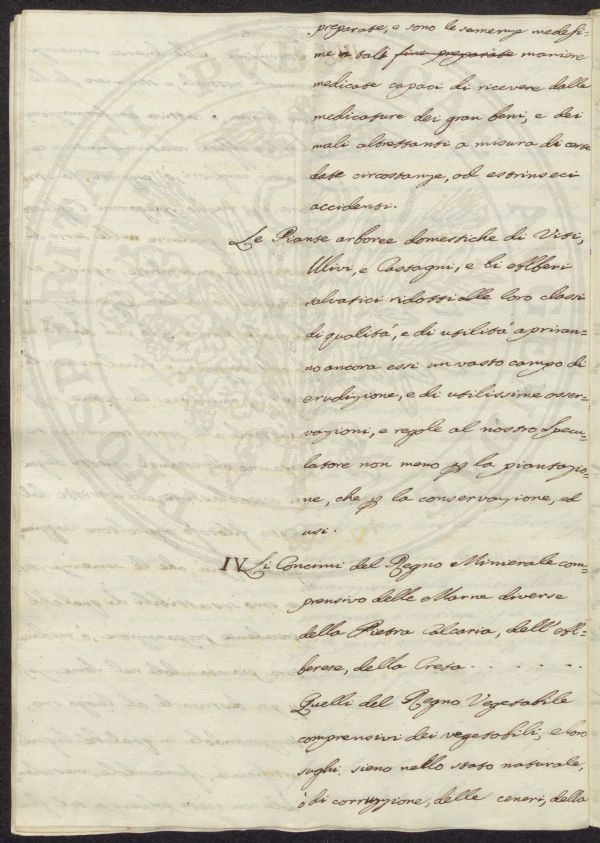 preparate, e sono le semenze medesi-
me in tali fine preparate maniere
medicate capaci di ricevere dalle
medicature dei gran beni, e dei
mali altrettanti a misura di certe
date circostanze, od estrinseci
accidenti.
Le Piante arboree domestiche di Viti,
Ulivi, e Castagni, e li Alberi
salvatici ridotti alle loro classi
di qualità, e di utilità apriran=
no ancora essi un vasto campo di
erudizione, e di utilissime osser=
vazioni, e regole al nostro Specu=
latore non meno p la piantazio=
ne, che p la conservazione, ed
usi.
IV Li Concimi del Regno Minierale com=
prensivo delle Marne diverse
della Pietra Calcaria, dell'Al=
berese, della Creta . . . . . .
Quelli del Regno Vegetabile
comprensivi dei vegetabili, e loro
sughi, sieno nello stato naturale,
ò di corruzzione, delle ceneri, della
PROSPERITATI PUBLICAE AUGENDAE